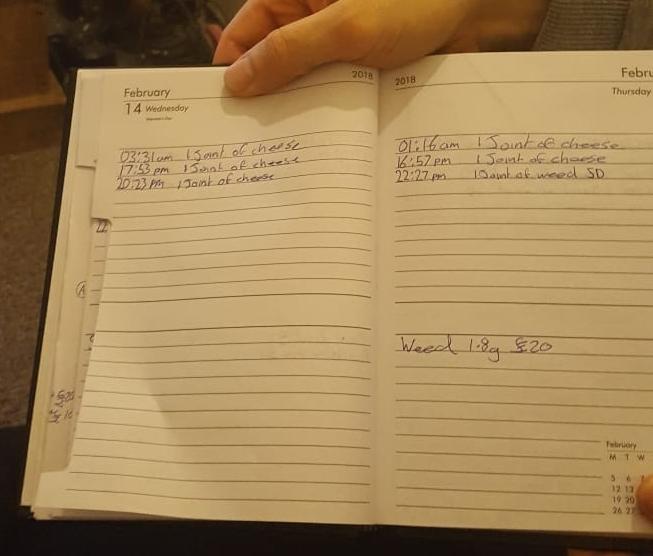 February
2018
14 Wednesday
03:31am 1 Joint of cheese
17:53 pm 1 Joint of cheese
20:23 pm 1 Joint of cheese
2018
Febru
Thursday
01:16am 1 Joint of cheese
16:57 pm 1 Joint of cheese
22:27 pm 1 Joint of weed SD
Weed 1.8g £20
February
M T W
5 6
12 13
19 20
26 27